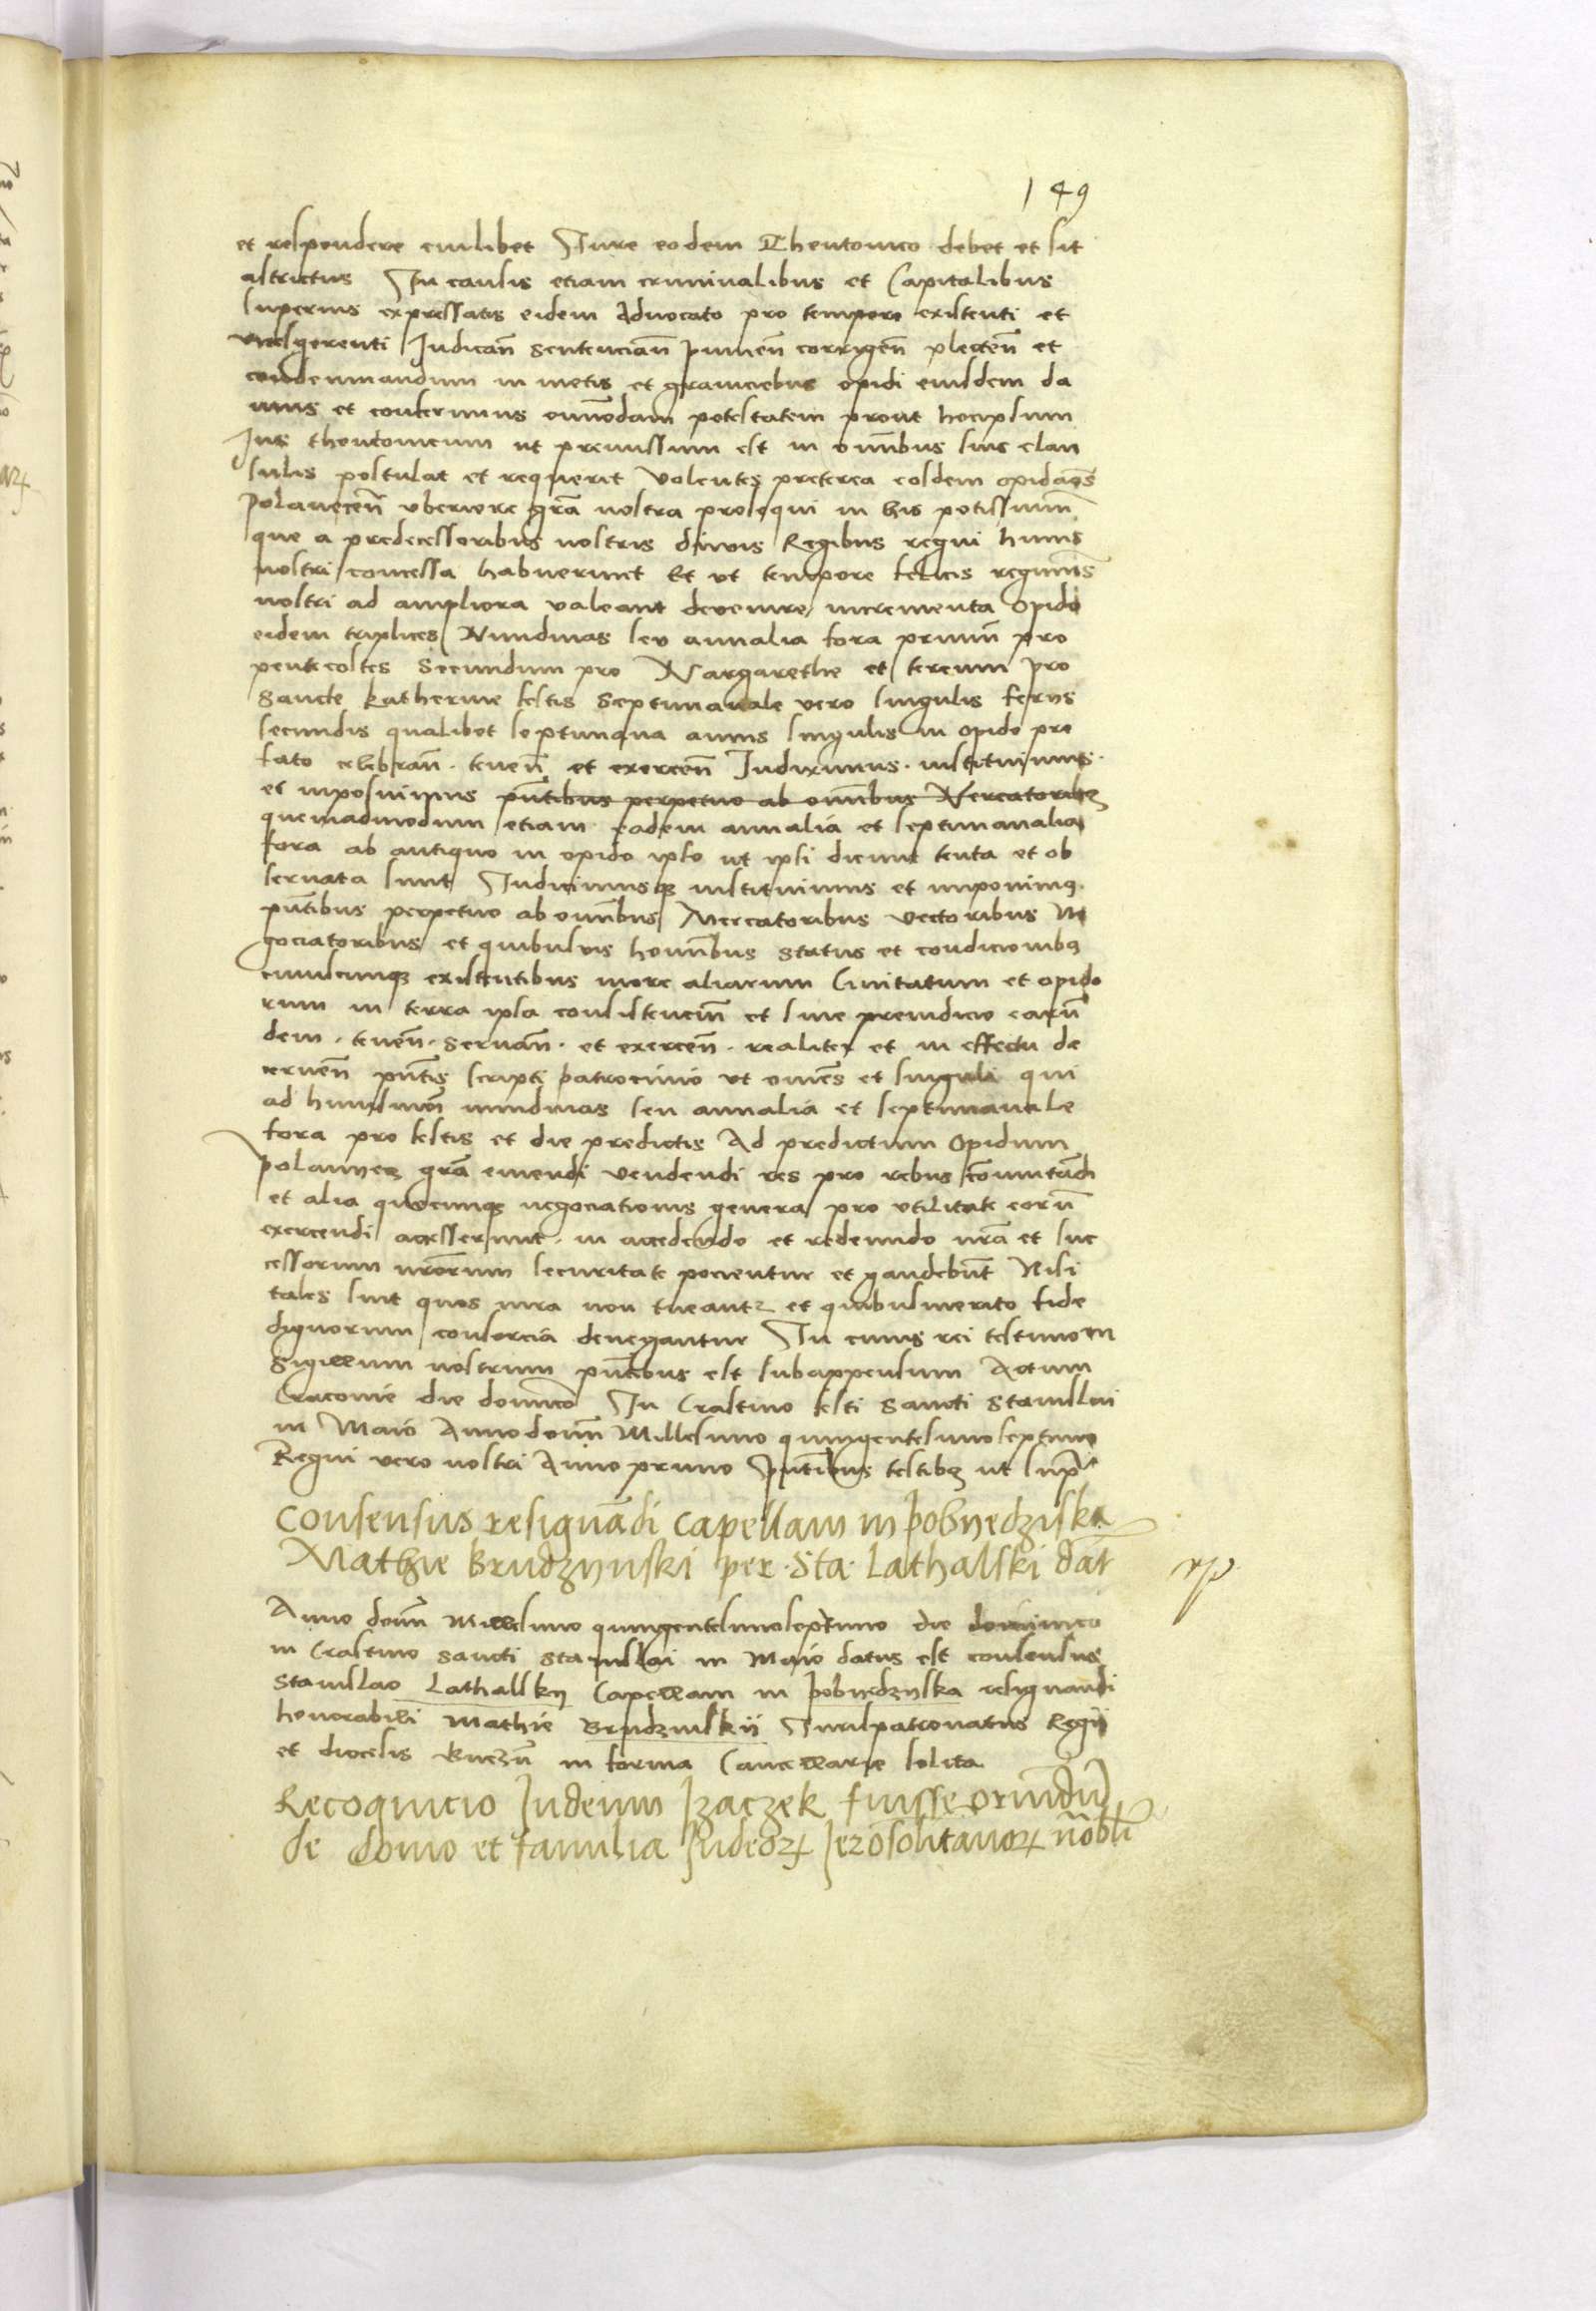 149
et respondere cuilibet Jure eodem Theutonico debet et sit
astrictus In causis etiam criminalibus et Capitalibus
superius expressatis eidem Advocato pro tempore existenti et
vicesgerenti Iudican̄ sentencian̄ punien̄ corrigen̄ plecten̄ et
condemnandum in metis et graniciebus opidi eiusdem da
mus et conferimus om̄modam potestatem prout hocipsum
Jus theutonicum ut premissum est in om̄ibus suis clau
sulis postulat et requirit Volentes preterea eosdem opidan̄s
Polanecen̄ uberiore gr̄a nostra prosequi in his potissimum
que a predecessoribus nostris divis Regibus regni huius
nostri concessa habuerunt Et ut tempore felicis regiminis
nostri ad ampliora valeant devenire incrementa Opido
eidem triplices Nundinas seu annalia fora primū pro
pentecostes Secundum pro Margarethe et tercium pro
Sancte Katherine festis Septimanale vero singulis feriis
secundis qualibet septimana annis singulis in opido pre
fato celebran̄. tenen̄ et exercen̄ Indiximus. instituimus.
et inposuimus pn̄tibus perpetuo ab om̄ibus Mercatorib3
quemadmodum etiam eadem annalia et septimanalia
fora ab antiquo in opido ipso ut ipsi dicunt tenta et ob
servata sunt Indicimusq3 instituimus et imponimus.
pn̄tibus perpetuo ab om̄ibus Mercatoribus Vectoribus Ne
gociatoribus et quibusvis hom̄ibus status et condicionibus
cuiuscumq3 existentibus more aliarum Civitatum et opido
rum in terra ipsa consistencium et sine preiudicio earū
dem. tenen̄. Servan̄. et exercen̄. realiter et in effectu de
cernen̄ pn̄tis scripti patrocinio ut om̄es et singuli qui
ad huiusmōi nundinas seu annalia et septimanale
fora pro festis et die predictis Ad predictum Opidum
Polanyecz gr̄a emendi vendendi res pro rebus com̄utandi
et alia quecumq3 negociationis genera pro utilitate eorū
exercendi accesserunt. in accedendo et redeundo nr̄a et suc
cessorum nr̄orum securitate pocientur et gaudebūt Nisi
tales sint quos iura non tueantr et quibus merito fide
dignorum consorcia denegantur In cuius rei testimonium
Sigillum nostrum pn̄tibus est subappensum Actum
Cracovie die dominico In Crastino festi Sancti Stanislai
in Maio Anno domini Millesimo quingentesimoseptimo
Regni vero nostri Anno primo pn̄tibus testib3 ut supra
Consensus resignādi capellam in pobyedziska
Mathie Brudzynski per. Sta. Lathalski dat
Anno domini Millesimo quingentesimoseptimo die dominico
in Crastino sancti Stanislai in Maio datus est consensus
Stanislao Lathalsky Capellam in pobyedzyska resignandi
honorabili Mathie Brudzinskii Jurispatronatus Regii
et diocesis Gnezn̄ in forma Cancellarie solita
Recognicio Judeum Jzaczek fuisse oriundū
de domo et familia Judeor Jerosolitanor nobli